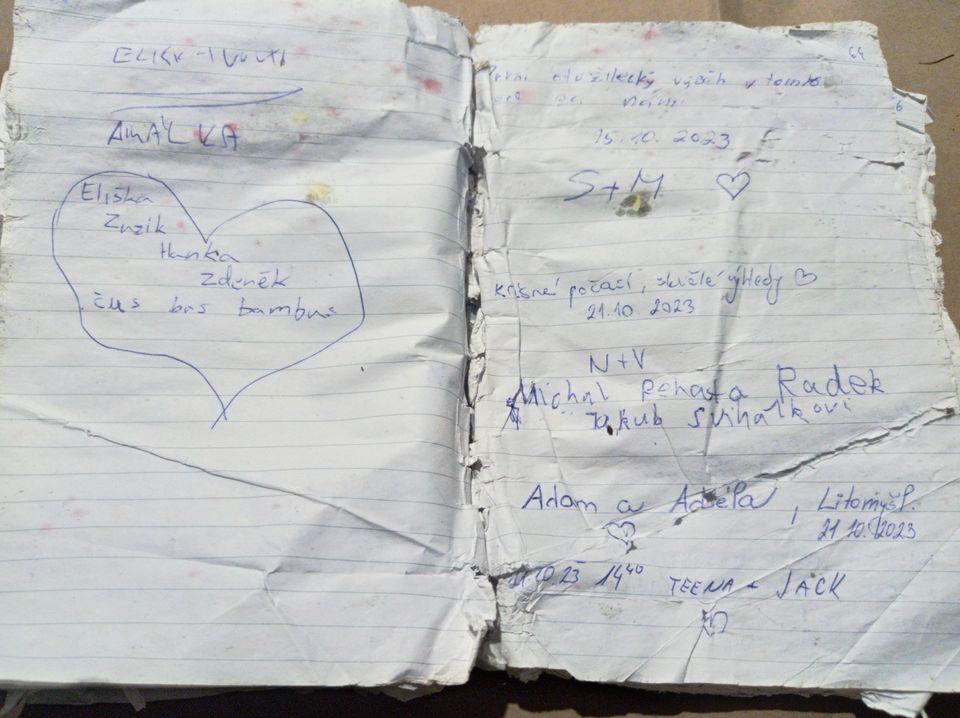 AMÁLKA
Eliška
Zuzik
Hanka
Zdeněk
čus bus bambus
64
První manželský výběh v tomto
15.10.2023
S+M ♡
6
krásné počasí, skvělé výhledy ♡
21.10.2023
N+V
Michal Renata Radek
Jakub Svihálkovi
Adam a Adéla, Litomyšl.
♡ 21.10.2023
21.10 23 14⁴⁰ TEENA + JACK